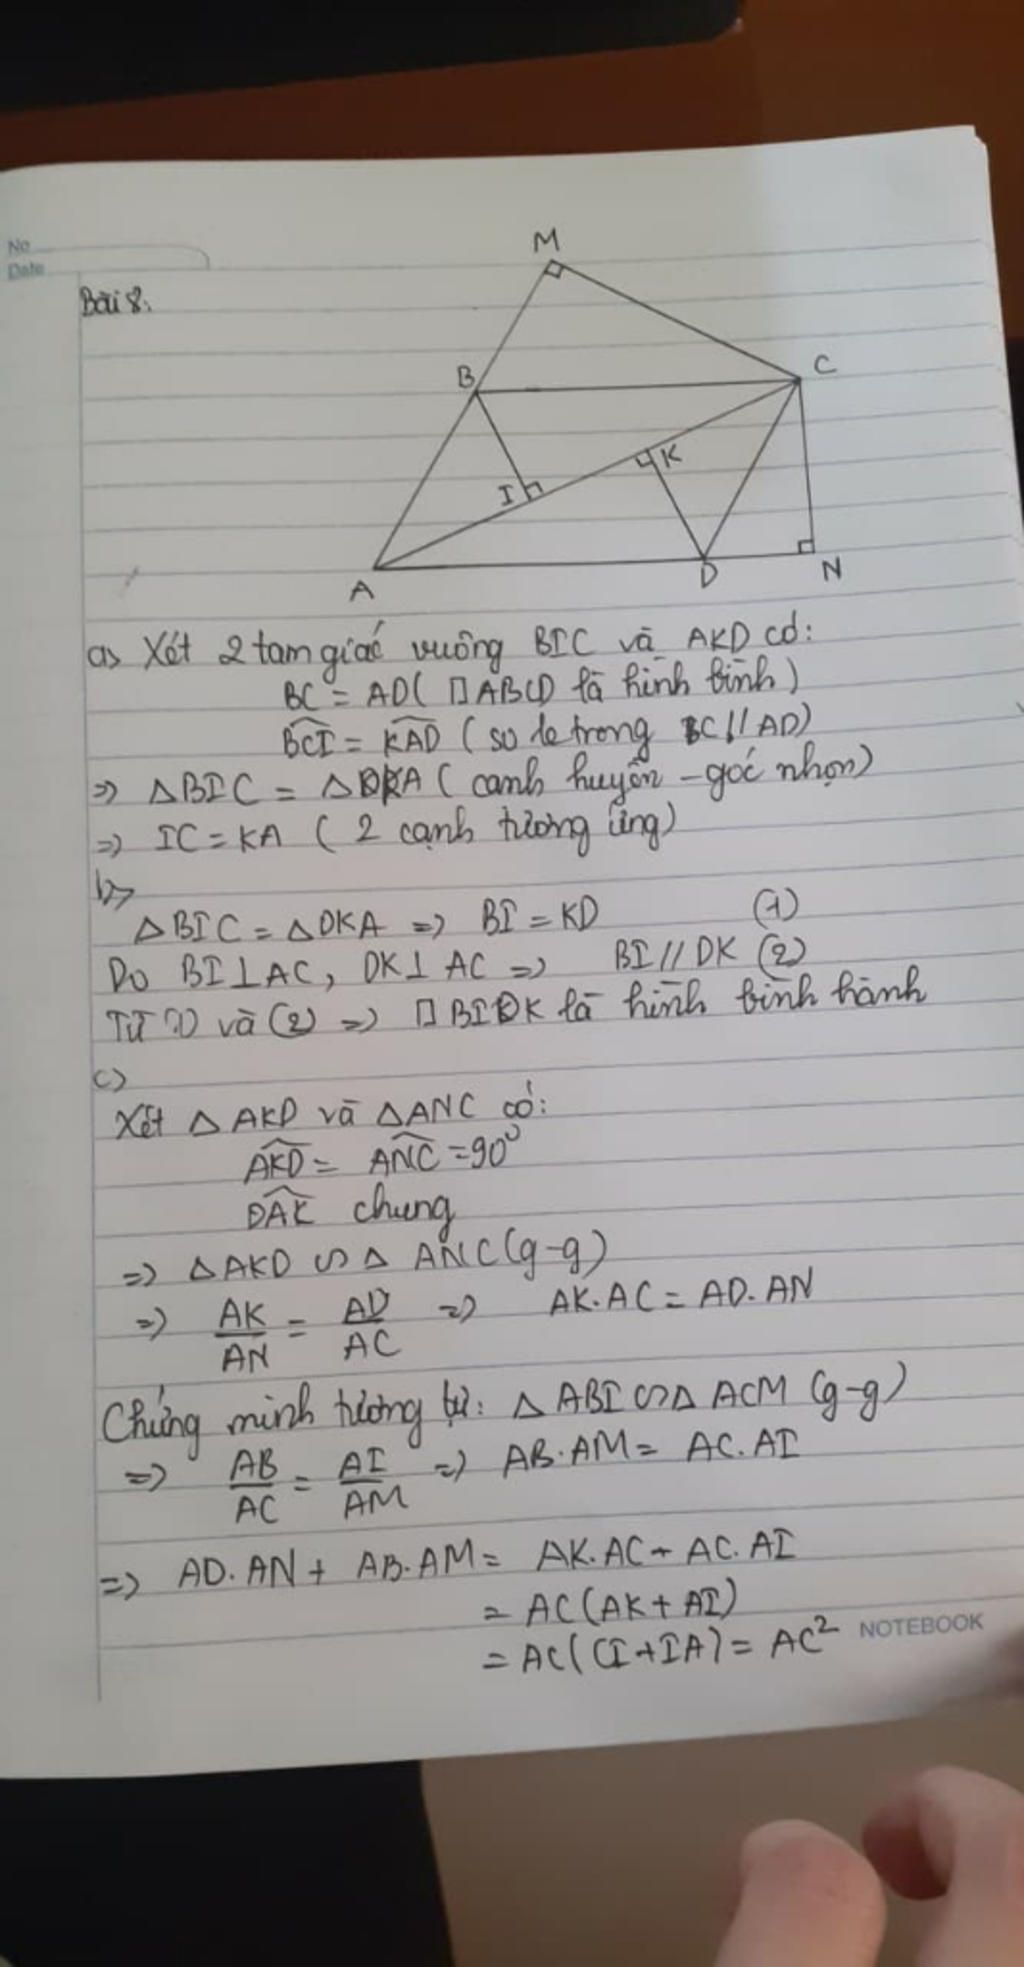 No
Date
Bài 8.
M
B
C
K
I
A
D
N
a) Xét 2 tam giác vuông BIC và AKD có:
BC = AD (□ABCD là hình bình)
BCI = KAD (so le trong BC // AD)
=> △BIC = △DKA (cạnh huyền - góc nhọn)
=> IC = KA (2 cạnh tương ứng)
b)
△BIC = △DKA => BI = KD (1)
Do BI ⊥ AC, DK ⊥ AC => BI // DK (2)
Từ (1) và (2) => □BIDK là hình bình hành
c)
Xét △AKD và △ANC có:
AKD = ANC = 90°
DAK chung
=> △AKD ∽ △ANC (g-g)
=> AK/AN = AD/AC => AK.AC = AD.AN
Chứng minh tương tự: △ABI ∽ △ACM (g-g)
=> AB/AC = AI/AM => AB.AM = AC.AI
=> AD.AN + AB.AM = AK.AC + AC.AI
= AC(AK + AI)
= AC(CI + IA) = AC²
NOTEBOOK